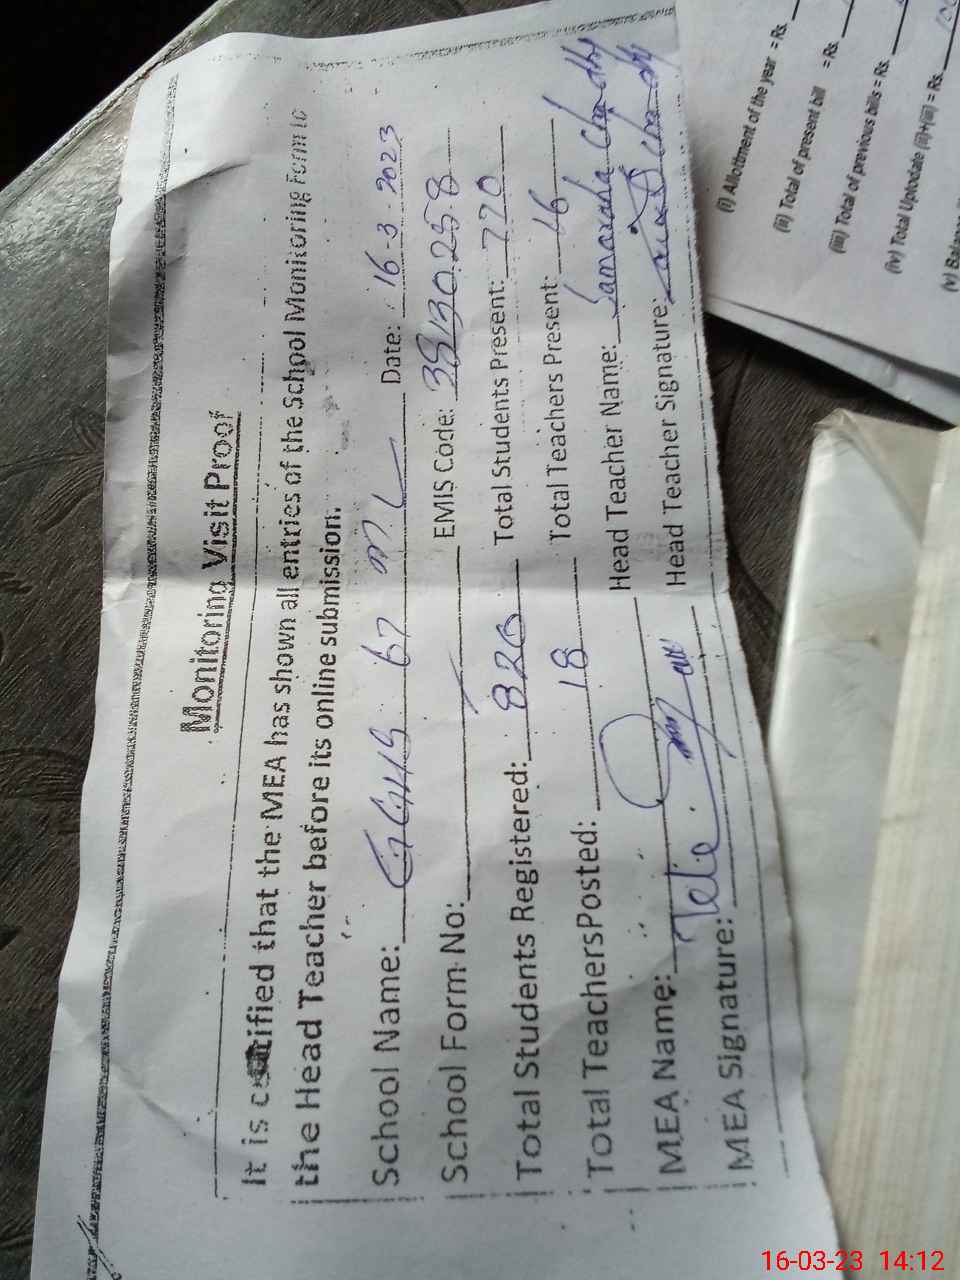 Monitoring Visit Proof
It is certified that the MEA has shown all entries of the School Monitoring Form to
the Head Teacher before its online submission.
School Name: GGHS 67 ML Date: 16-3-2023
School Form No: EMIS Code: 38130258
Total Students Registered: 820 Total Students Present: 770
Total TeachersPosted: 18 Total Teachers Present: 16
MEA Name: Head Teacher Name: Samaraha Chadhy
MEA Signature: Head Teacher Signature:
(i) Allotment of the year = Rs.
(ii) Total of present bill = Rs.
(iii) Total of previous bills = Rs.
(iv) Total Uptodate (ii)+(iii) = Rs.
(v)
16-03-23 14:12